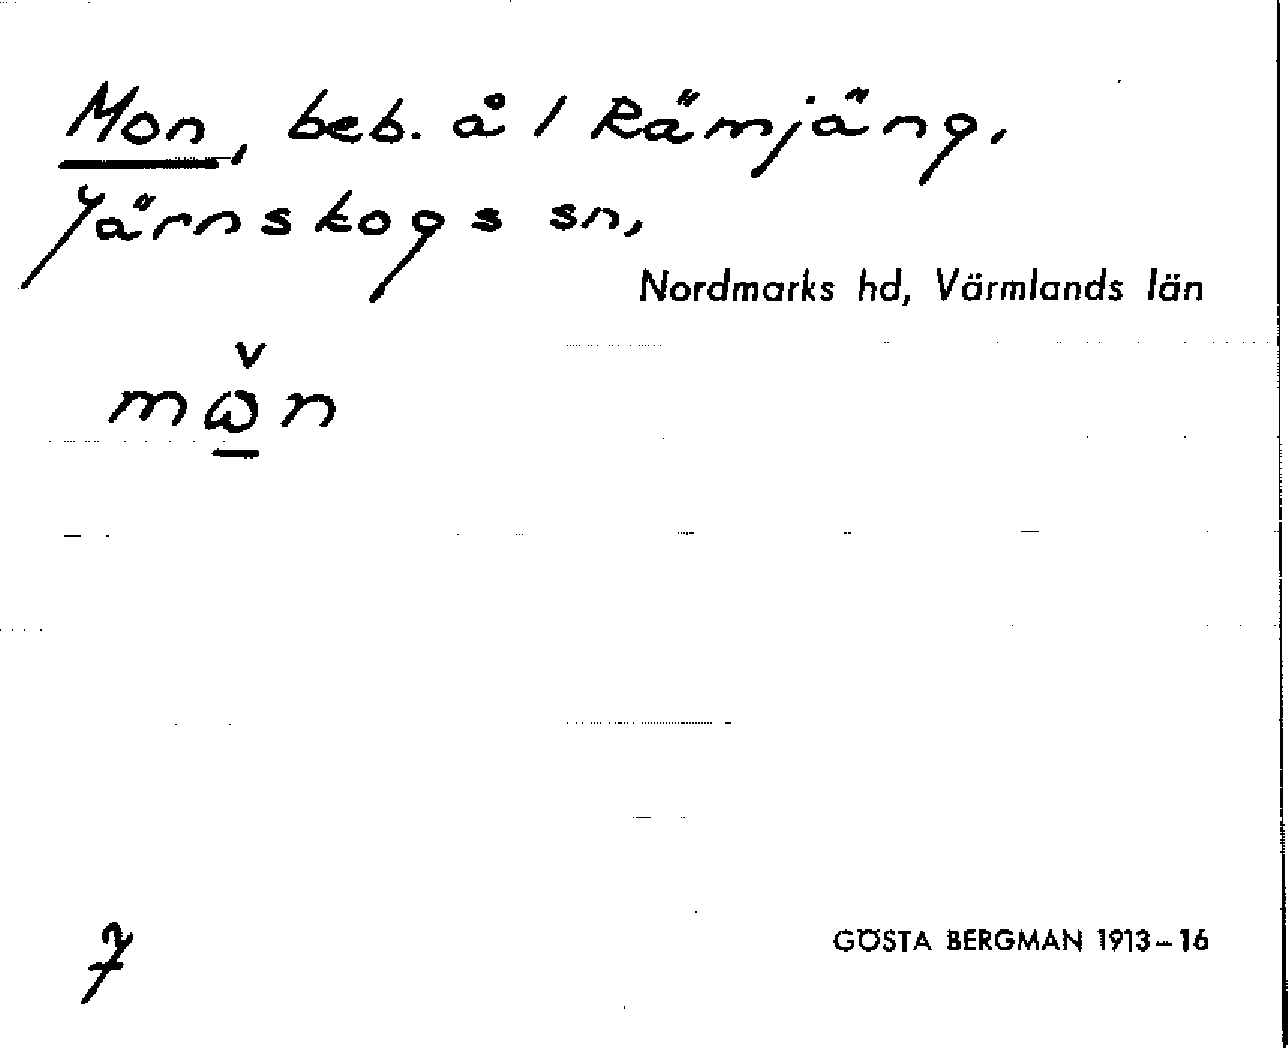 Mon, beb. å 1 Rämjäng,
Järnskogs sn,
Nordmarks hd, Värmlands län
7
GÖSTA BERGMAN 1913-16